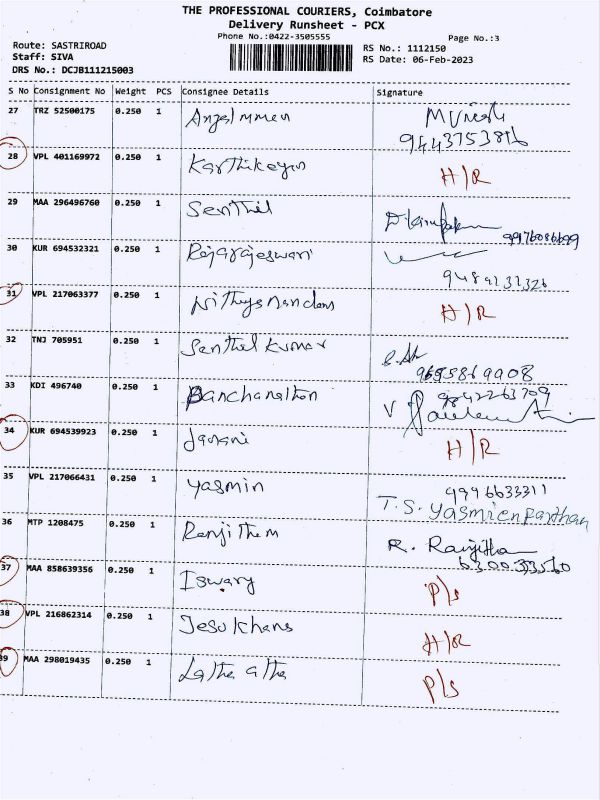 THE PROFESSIONAL COURIERS, Coimbatore
Delivery Runsheet - PCX
Phone No.:0422-3505555
Page No.:3
Route: SASTRIROAD
Staff: SIVA
DRS No.: DCJB111215003
RS No.: 1112150
RS Date: 06-Feb-2023
S No Consignment No Weight PCS Consignee Details Signature
27 TRZ 52500175 0.250 1
28 VPL 401169972 0.250 1 Karthikeyan H/R
29 MAA 296496760 0.250 1 Senthil 9976086699
30 KUR 694532321 0.250 1 Rajarajeswari
31 VPL 217063377 0.250 1 H/R
32 TNJ 705951 0.250 1 Senthil kumar 9695869908
33 KDI 496740 0.250 1 9842263709
34 KUR 694539923 0.250 1 Janani H/R
35 VPL 217066431 0.250 1 Yasmin 9996633311
T.S. Yasmien
36 MTP 1208475 0.250 1
37 MAA 858639356 0.250 1 Iswary P/s
38 VPL 216862314 0.250 1 H/R
39 MAA 298019435 0.250 1 P/s